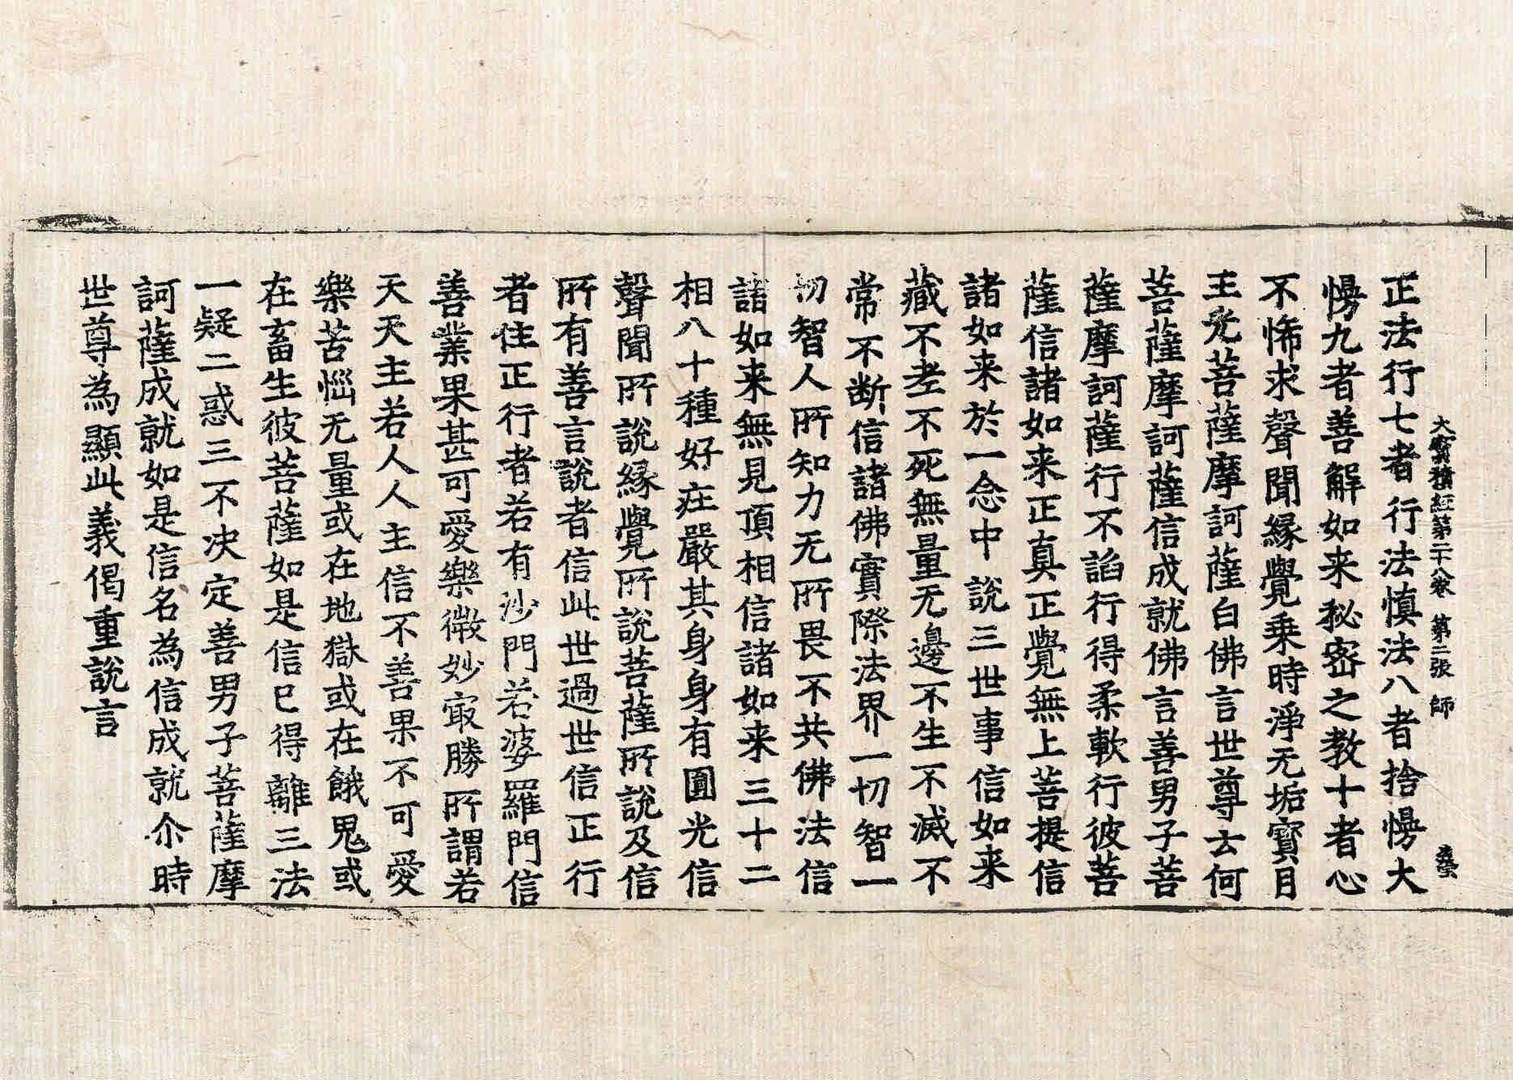 大寶積經第二十八卷 第二張 師
正法行七者行法慎法八者捨慢大
慢九者善解如来秘密之教十者心
不怖求聲聞縁覺乗時淨无垢寶月
王光菩薩摩訶薩白佛言世尊云何
菩薩摩訶薩信成就佛言善男子菩
薩摩訶薩行不諂行得柔軟行彼菩
薩信諸如来正真正覺無上菩提信
諸如来於一念中說三世事信如来
藏不老不死無量无邊不生不滅不
常不断信諸佛實際法界一切智一
切智人所知力无所畏不共佛法信
諸如来無見頂相信諸如来三十二
相八十種好莊嚴其身身有圓光信
聲聞所說縁覺所說菩薩所說及信
所有善言說者信此世過世信正行
者住正行者若有沙門若婆羅門信
善業果甚可愛樂微妙㝡勝所謂若
天天主若人人主信不善果不可愛
樂苦惱无量或在地獄或在餓鬼或
在畜生彼菩薩如是信已得離三法
一疑二惑三不决定善男子菩薩摩
訶薩成就如是信名為信成就尒時
世尊為顯此義偈重說言